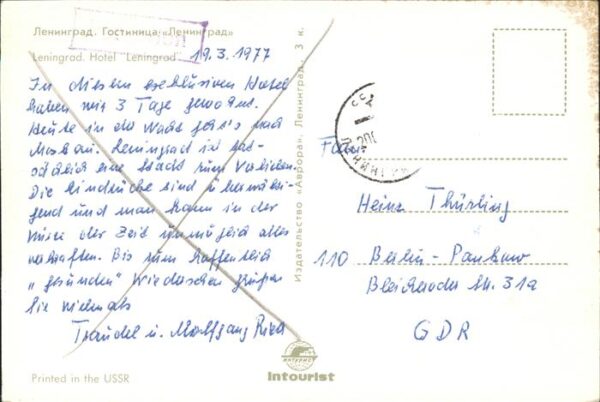 Ленинград. Гостиница «Ленинград»
Leningrad. Hotel "Leningrad"
19.3.1977
In diesem exklusiven Hotel
haben wir 3 Tage gewohnt.
Heute in der Nacht geht's nach
Moskau. Leningrad ist tat-
sächlich eine Stadt zum Verlieben.
Die Eindrücke sind überwälti-
gend und man kann in der
Kürze der Zeit unmöglich alles
verkraften. Bis zum hoffentlich
„gesunden" Wiedersehen grüßen
Sie vielmals
Traudel u. Wolfgang
Издательство «Аврора». Ленинград. 3 к.
Fam.
Heinz Thürling
110 Berlin-Pankow
Str. 31a
GDR
ИНТУРИСТ
Intourist
Printed in the USSR